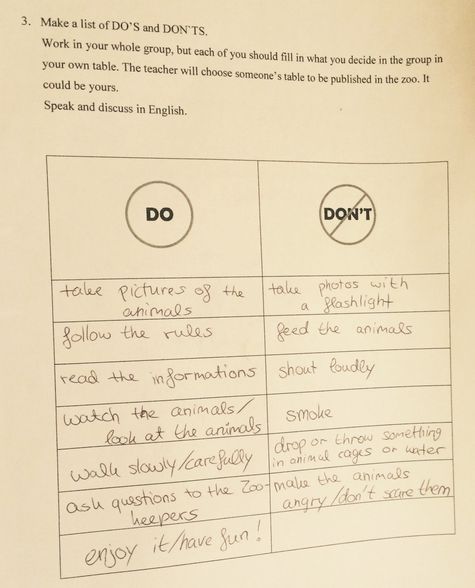 3. Make a list of DO'S and DON'TS.
Work in your whole group, but each of you should fill in what you decide in the group in
your own table. The teacher will choose someone's table to be published in the zoo. It
could be yours.
Speak and discuss in English.
DO
DON'T
take pictures of the
animals
take photos with
a flashlight
follow the rules
feed the animals
read the informations
shout loudly
watch the animals/
look at the animals
smoke
walk slowly/carefully
drop or throw something
in animal cages or water
ask questions to the Zoo-
keepers
make the animals
angry/don't scare them
enjoy it/have fun!